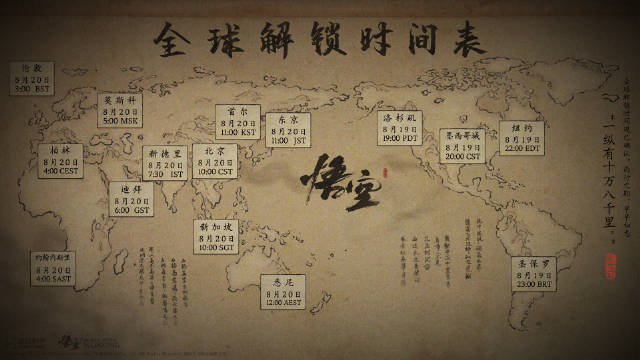 全球解锁时间表
伦敦
8月20日
3:00 BST
莫斯科
8月20日
5:00 MSK
柏林
8月20日
4:00 CEST
新德里
8月20日
7:30 IST
迪拜
8月20日
6:00 GST
首尔
8月20日
11:00 KST
东京
8月20日
11:00 JST
北京
8月20日
10:00 CST
新加坡
8月20日
10:00 SGT
约翰内斯堡
8月20日
4:00 SAST
悉尼
8月20日
12:00 AEST
悟空
洛杉矶
8月19日
19:00 PDT
墨西哥城
8月19日
20:00 CST
纽约
8月19日
22:00 EDT
圣保罗
8月19日
23:00 BRT
纵有十万八千里。